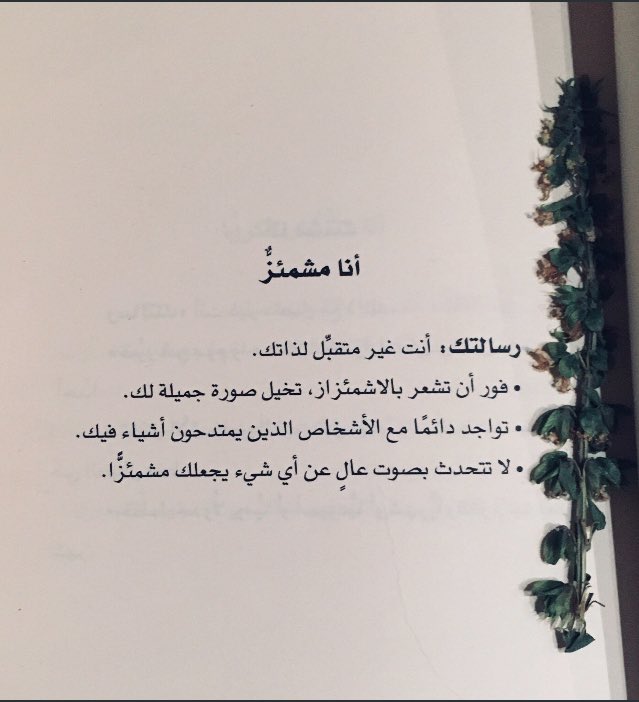 أنا مشمئزٌّ
رسالتك: أنت غير متقبِّل لذاتك.
• فور أن تشعر بالاشمئزاز، تخيل صورة جميلة لك.
• تواجد دائمًا مع الأشخاص الذين يمتدحون أشياء فيك.
• لا تتحدث بصوت عالٍ عن أي شيء يجعلك مشمئزًّا.